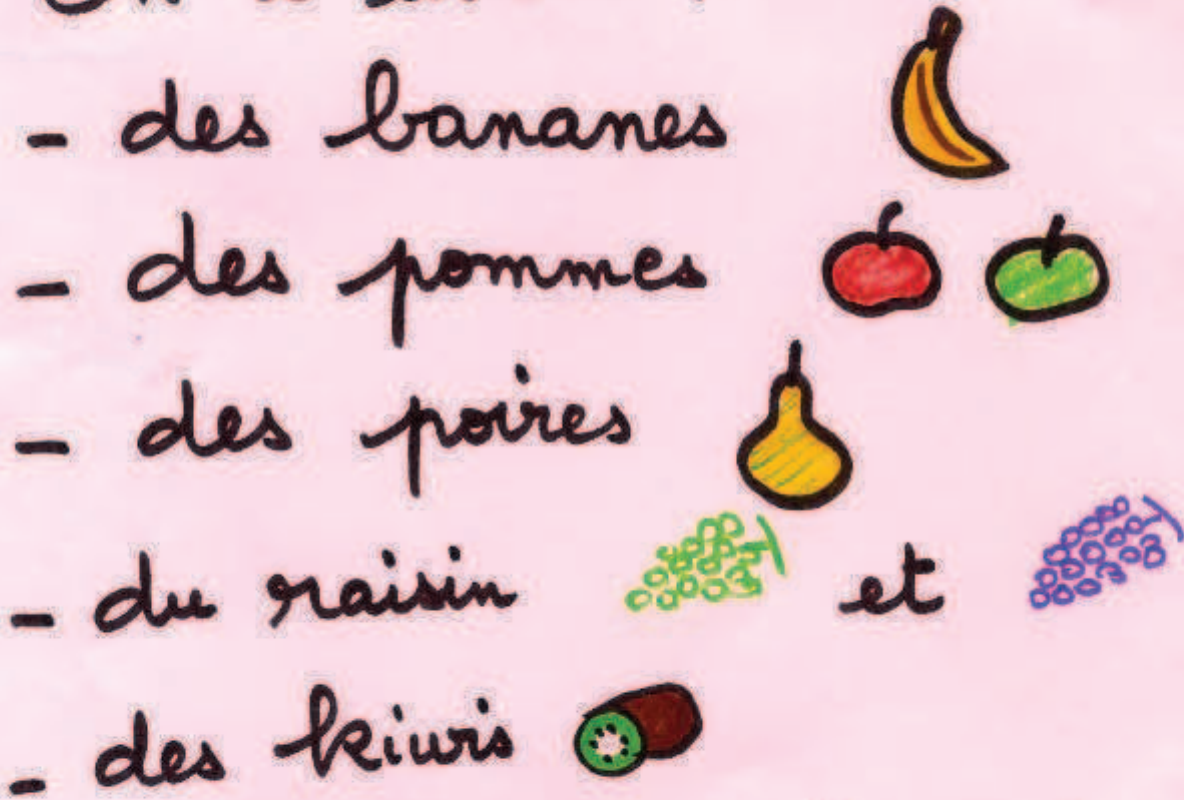 - des bananes
- des pommes
- des poires
- du raisin et
- des kiwis